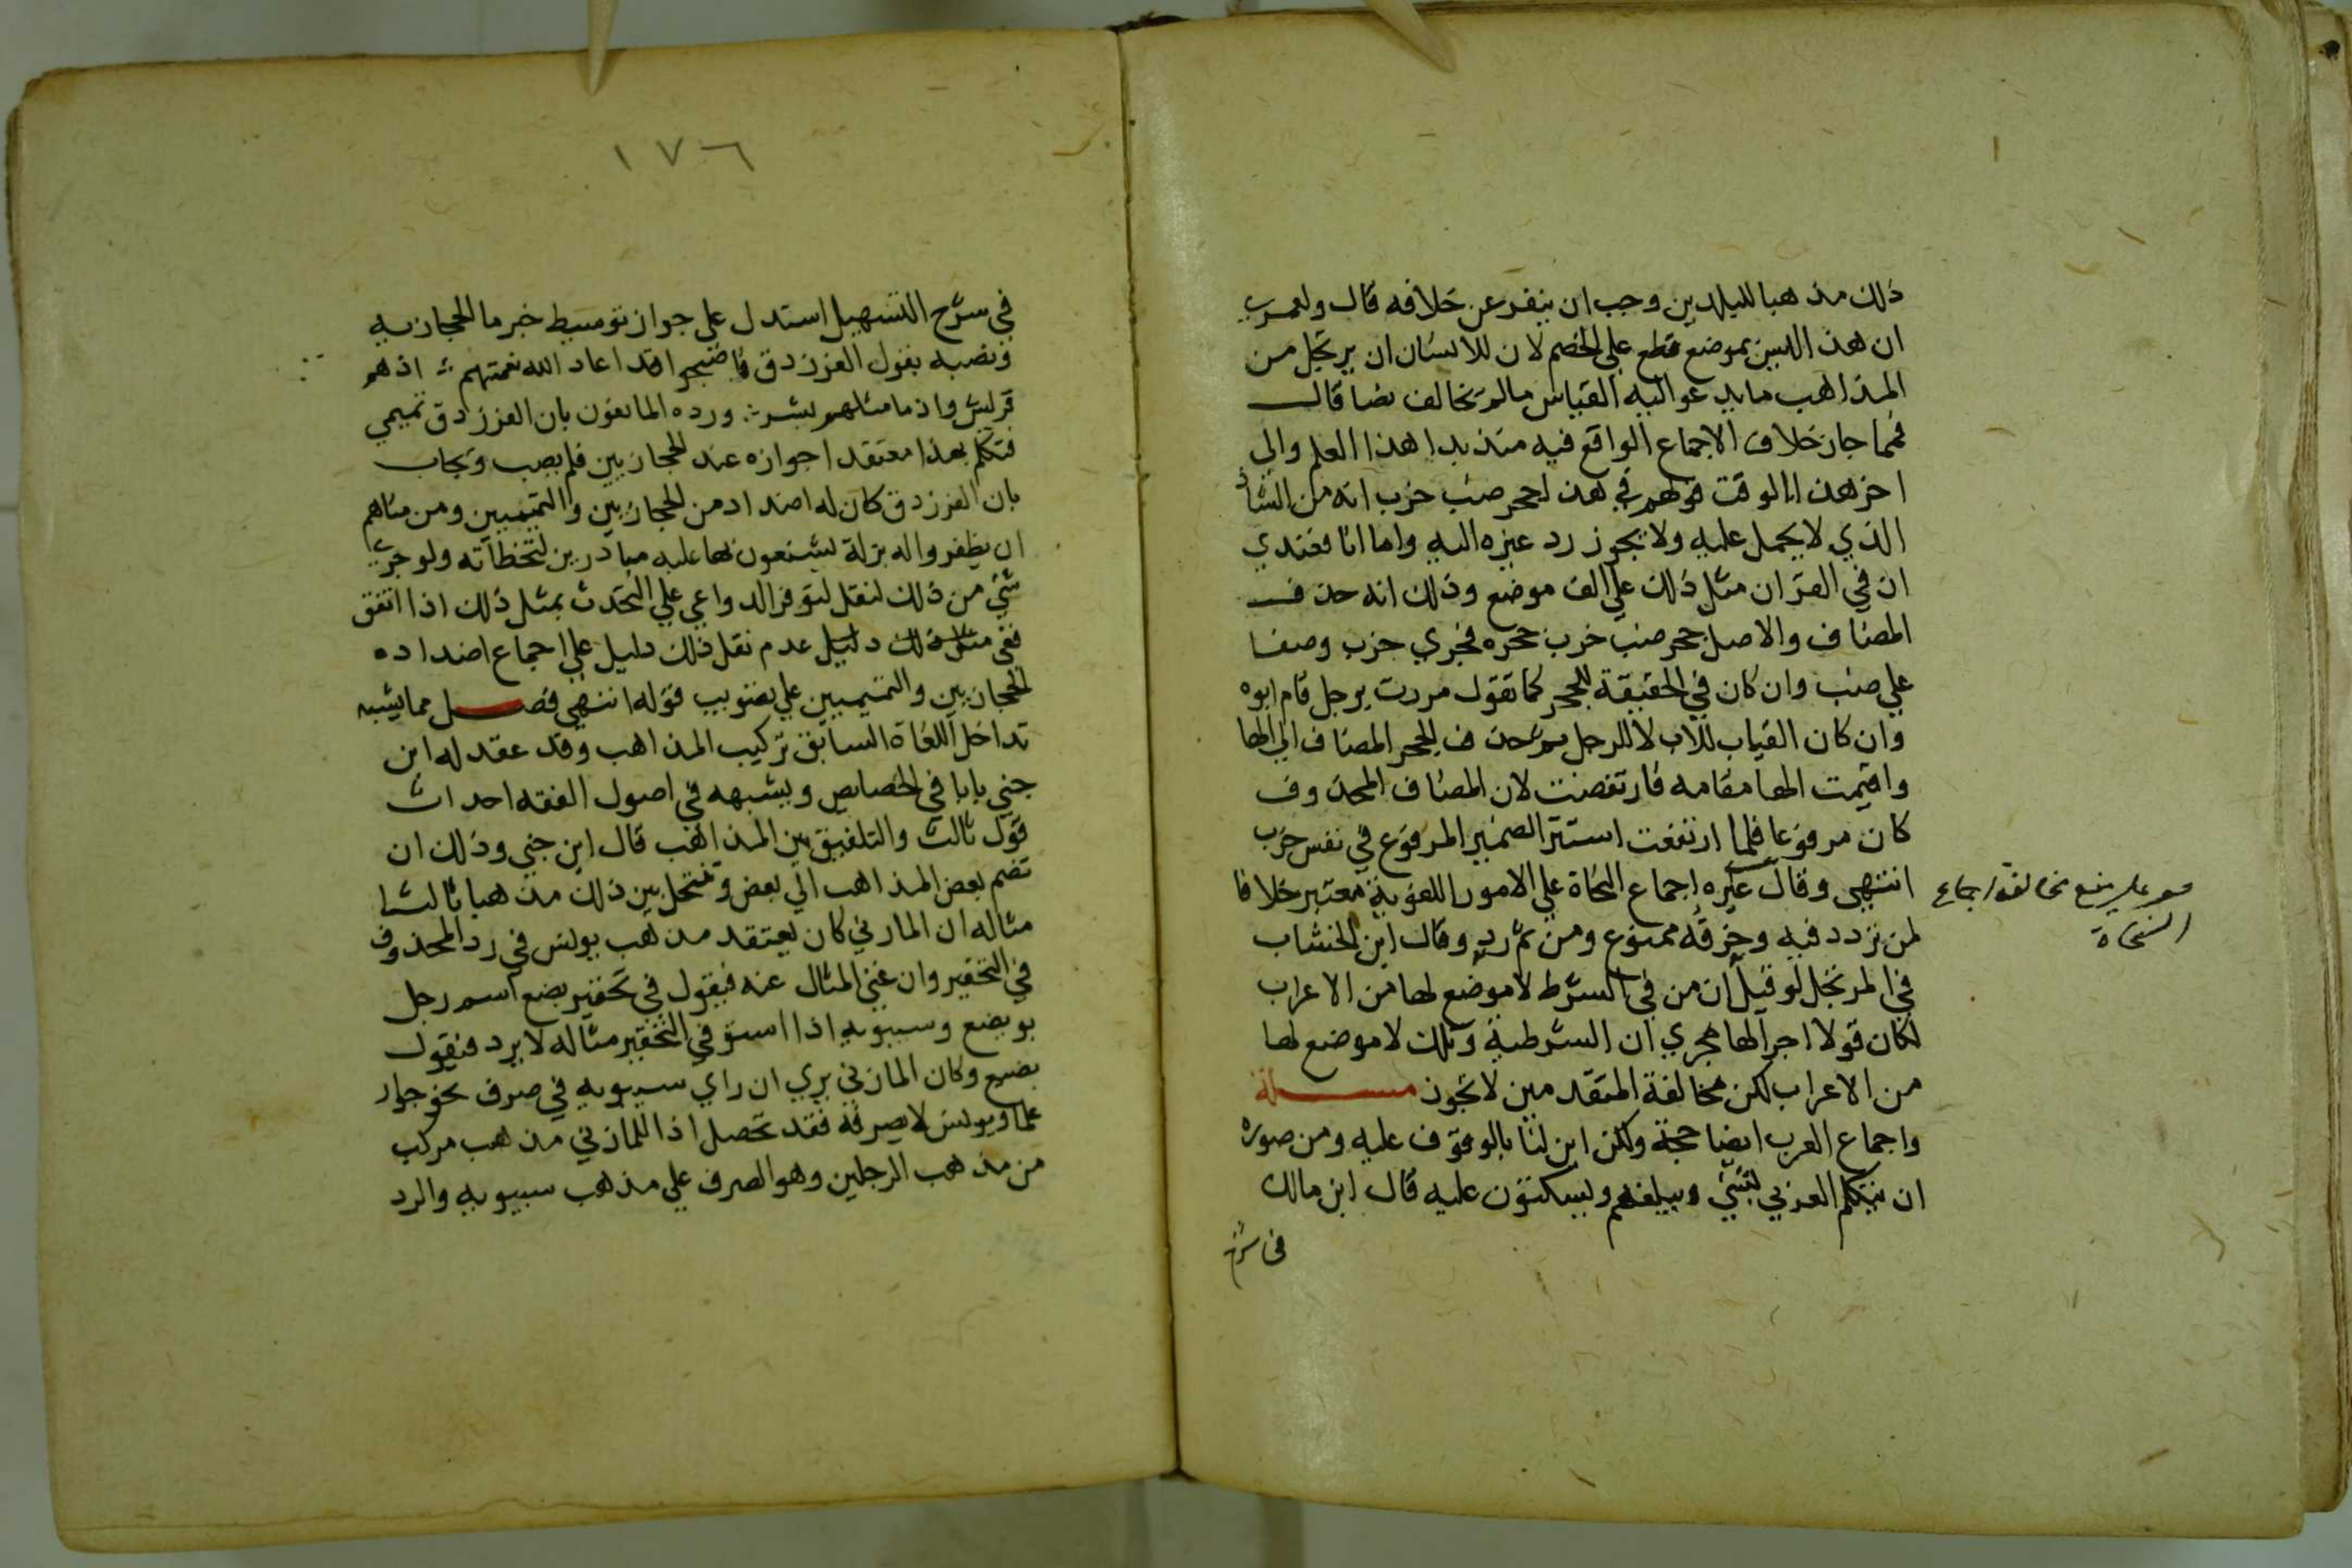 ذلك مذهبا للبلدين وجب ان ينفر عن خلافه قال ولعمري
ان هذا ليس بموضع قطع علي الخصم لان للانسان ان يرتجل من
المذاهب ما يدعو اليه القياس مالم يخالف نصا قال
فمما جاز خلاف الاجماع الواقع فيه منذ بدا هذا العلم والي
اخر هذا الوقت قولهم في هذا جحر ضب خرب انه من الشاذ
الذي لا يحمل عليه ولا يجوز رد غيره اليه واما انا فعندي
ان في القران مثل ذلك علي الف موضع وذلك انه حذف
المضاف والاصل جحر ضب خرب جحره فجري خرب وصفا
علي ضب وان كان في الحقيقة للجحر كما تقول مررت برجل قام ابوه
وان كان القيام للاب لا للرجل ثم حذف الجحر المضاف الي الها
واقيمت الها مقامه فارتفعت لان المضاف المحذوف
كان مرفوعا فلما ارتفعت استتر الضمير المرفوع في نفس خرب
انتهي وقال غيره اجماع النحاة علي الامور اللغوية معتبر خلافا
لمن تردد فيه وخرقه ممنوع ومن ثم رد وقال ابن الخشاب
في المرتجل لو قيل ان من في الشرط لا موضع لها من الاعراب
لكان قولا اجرا لها مجري ان الشرطية وتلك لا موضع لها
من الاعراب لكن مخالفة المتقدمين لا تجوز مسئلة
واجماع العرب ايضا حجة ولكن اين لنا بالوقوف عليه ومن صوره
ان يتكلم العربي بشي ويبلغهم ويسكتون عليه قال ابن مالك
في شرح
منع مخالفة اجماع
النحاة
١٧٦
في شرح التسهيل استدل علي جواز توسيط خبر ما الحجازية
ونصبه بقول الفرزدق فاصبحوا قد اعاد الله نعمتهم ∴ اذ هم
قريش واذ ما مثلهم بشر ∴ ورده المانعون بان الفرزدق تميمي
فتكلم بهذا معتقدا جوازه عند الحجازيين فلم يصب ويجاب
بان الفرزدق كان له اضداد من الحجازيين والتميميين ومن مناهم
ان يظفروا له بزلة يشنعون بها عليه مبادرين لتخطأته ولو جري
شي من ذلك لنقل لتوفر الدواعي علي التحدث بمثل ذلك اذا اتفق
ففي مثل ذلك دليل عدم نقل ذلك دليل علي اجماع اضداده
الحجازيين والتميميين علي تصويب قوله انتهي فصل مما يشبه
تداخل اللغاة السابق تركيب المذاهب وقد عقد له ابن
جني بابا في الخصايص ويشبهه في اصول الفقه احداث
قول ثالث والتلفيق بين المذاهب قال ابن جني وذلك ان
تضم بعض المذاهب الي بعض وتنتحل بين ذلك مذهبا ثالثا
مثاله ان المازني كان يعتقد مذهب يونس في رد المحذوف
في التحقير وان غني المثال عنه فيقول في تحقير يضع اسم رجل
يويضع وسيبويه اذا استوفي التحقير مثاله لا يرد فيقول
يضيع وكان المازني يري ان راي سيبويه في صرف نحو جوار
علما ويونس لا يصرفه فقد تحصل اذا للمازني مذهب مركب
من مذهب الرجلين وهو الصرف علي مذهب سيبويه والرد